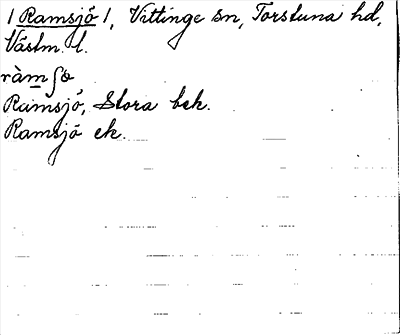 / Ramsjö /, Vittinge sn, Torstuna hd,
Västm. l.
ràmʃö
Ramsjö, Stora bek.
Ramsjö ek.